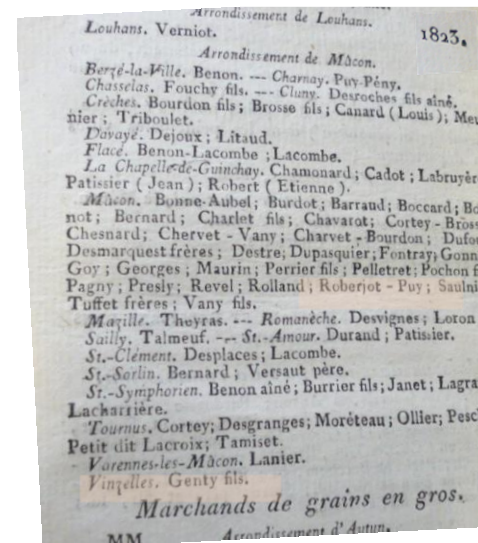 Arrondissement de Louhans.
Louhans. Verniot.
1823.
Arrondissement de Mâcon.
Berzé-la-Ville. Benon. --- Charnay. Puy-Pény.
Chasselas. Fouchy fils. --- Cluny. Desroches fils aîné.
Crèches. Bourdon fils; Brosse fils; Canard (Louis); Meu
nier; Triboulet.
Davayé. Dejoux; Litaud.
Flacé. Benon-Lacombe; Lacombe.
La Chapelle-de-Guinchay. Chamonard; Cadot; Labruyèr
Patissier (Jean); Robert (Etienne).
Mâcon. Bonne-Aubel; Burdot; Barraud; Boccard; Bo
not; Bernard; Charlet fils; Chavarot; Cortey-Bross
Chesnard; Chervet-Vany; Charvet-Bourdon; Dufou
Desmarquest frères; Destre; Dupasquier; Fontray; Gonn
Goy; Georges; Maurin; Perrier fils; Pelletret; Pochon f
Pagny; Presly; Revel; Rolland; Roberjot-Puy; Saulni
Tuffet frères; Vany fils.
Mazille. Theyras. --- Romanèche. Desvignes; Loron
Sailly. Talmeuf. --- St.-Amour. Durand; Patissier.
St.-Clément. Desplaces; Lacombe.
St.-Sorlin. Bernard; Versaut père.
St.-Symphorien. Benon aîné; Burrier fils; Janet; Lagra
Lacharrière.
Tournus. Cortey; Desgranges; Moréteau; Ollier; Pesc
Petit dit Lacroix; Tamiset.
Varennes-les-Mâcon. Lanier.
Vinzelles. Genty fils.
Marchands de grains en gros.
MM Arrondissement d'Autun.